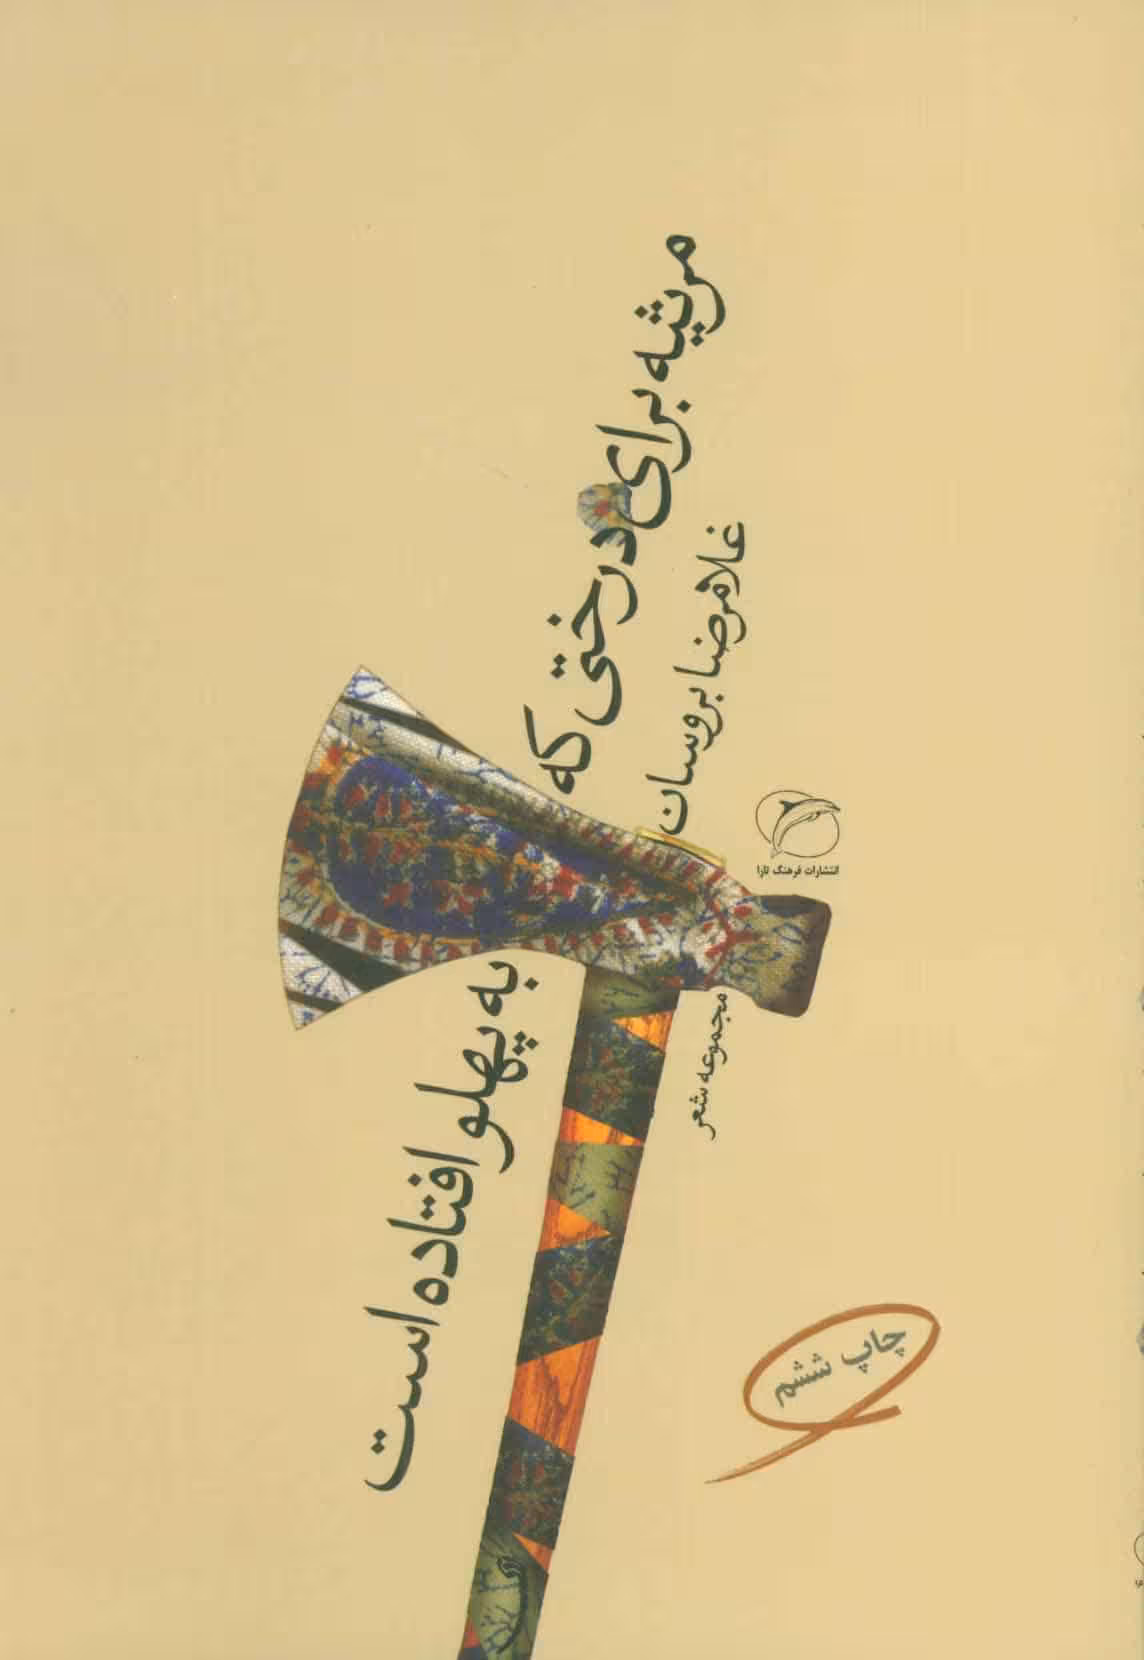 مرثیه برای درختی که
به پهلو افتاده است
غلامرضا بروسان
مجموعه شعر
انتشارات فرهنگ تارا
چاپ ششم